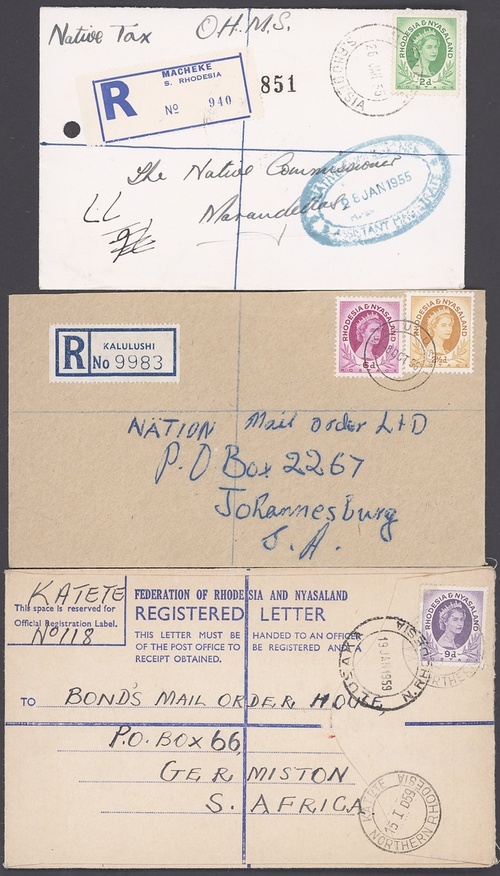 Native Tax
O.H.M.S.
MACHEKE
S. RHODESIA
R
No 940
851
RHODESIA & NYASALAND
2d
POSTAGE
RHODESIA
The Native Commissioner
Marandellas
28 JAN 1955
ASSISTANT MAGISTRATE
LL
R
KALULUSHI
No 9983
RHODESIA & NYASALAND
6d
RHODESIA & NYASALAND
2½d
OCT 56
NATION Mail order LtD
P.O Box 2267
Johannesburg
S.A.
KATETE
This space is reserved for
Official Registration Label.
No 118
FEDERATION OF RHODESIA AND NYASALAND
REGISTERED LETTER
THIS LETTER MUST BE HANDED TO AN OFFICER
OF THE POST OFFICE TO BE REGISTERED AND A
RECEIPT OBTAINED.
RHODESIA & NYASALAND
9d
LUSAKA
19 JAN 1959
N. RHODESIA
TO BOND'S MAIL ORDER HOUSE,
P.O. BOX 66,
GERMISTON
S. AFRICA
KATETE
15 I 59
NORTHERN RHODESIA